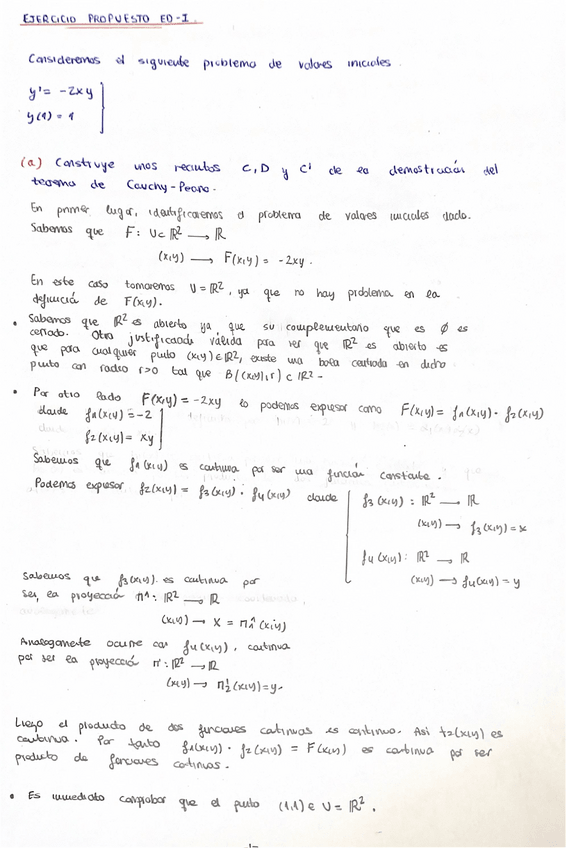 EJERCICIO PROPUESTO ED-I.
Consideremos el siguiente problema de valores iniciales.
y' = -2xy
y(1) = 1
(a) Construye unos recintos C, D y C' de la demostración del
teorema de Cauchy-Peano.
En primer lugar, identificaremos el problema de valores iniciales dado.
Sabemos que F: U⊂ ℝ² → ℝ
(x,y) → F(x,y) = -2xy.
En este caso tomaremos U = ℝ², ya que no hay problema en la
definición de F(x,y).
• Sabemos que ℝ² es abierto ya que su complementario que es ∅ es
cerrado. Otra justificación válida para ver que ℝ² es abierto es
que para cualquier punto (x,y) ∈ ℝ², existe una bola centrada en dicho
punto con radio r>0 tal que B((x,y),r) ⊂ ℝ².
• Por otro lado F(x,y) = -2xy lo podemos expresar como F(x,y) = f1(x,y) · f2(x,y)
donde f1(x,y) = -2
f2(x,y) = xy
Sabemos que f1(x,y) es continua por ser una función constante.
Podemos expresar f2(x,y) = f3(x,y) · f4(x,y) donde
f3(x,y) : ℝ² → ℝ
(x,y) → f3(x,y) = x
f4(x,y) : ℝ² → ℝ
(x,y) → f4(x,y) = y
Sabemos que f3(x,y) es continua por
ser la proyección π1 : ℝ² → ℝ
(x,y) → x = (x,y)
Analogamente ocurre con f4(x,y), continua
por ser la proyección : ℝ² → ℝ
(x,y) → (x,y) = y.
Luego el producto de dos funciones continuas es continuo. Asi f2(x,y) es
continua. Por tanto f1(x,y) · f2(x,y) = F(x,y) es continua por ser
producto de funciones continuas.
• Es inmediato comprobar que el punto (1,1) ∈ U = ℝ².